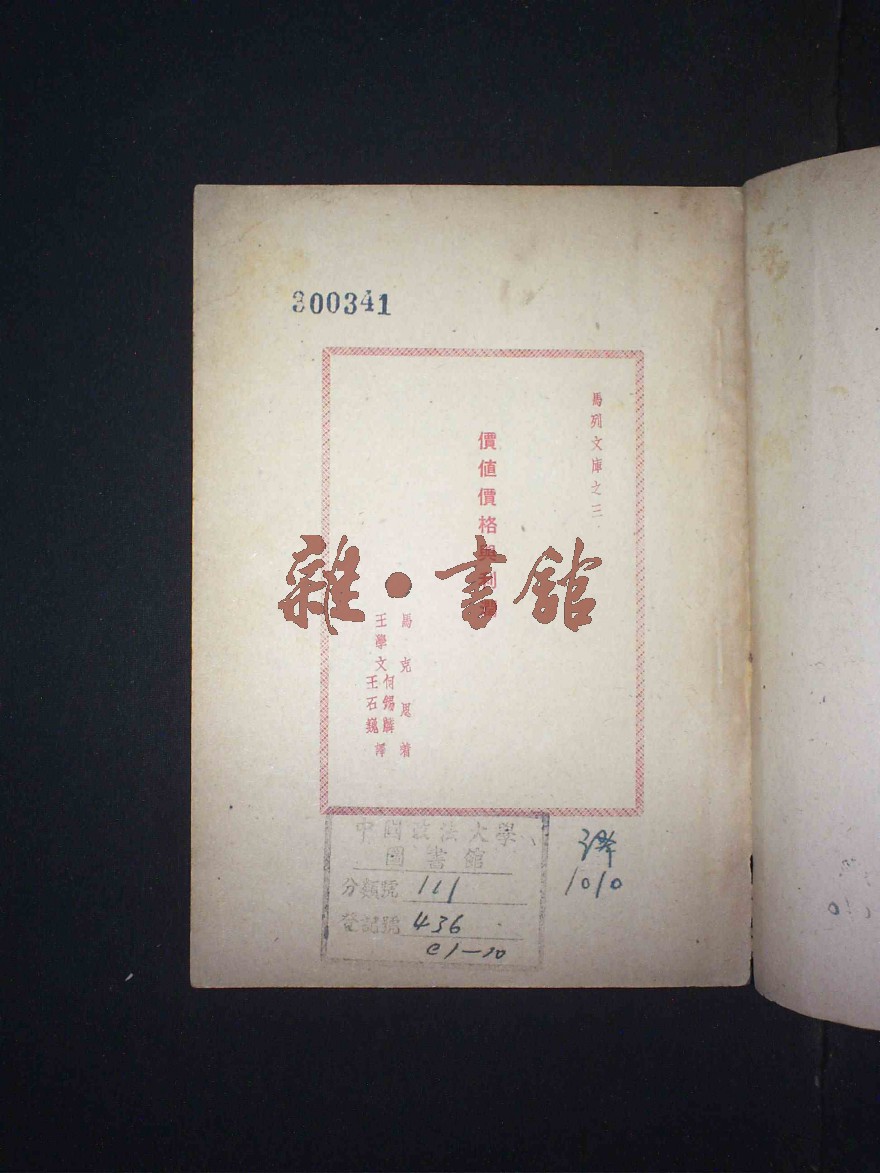 300341
馬列文庫之三
價值價格與利潤
馬克思着
王學文 何錫麟 王石巍 譯
雜·書館
中國政法大學
圖書館
分類號 111
登記號 436
c1—30
譯
1010